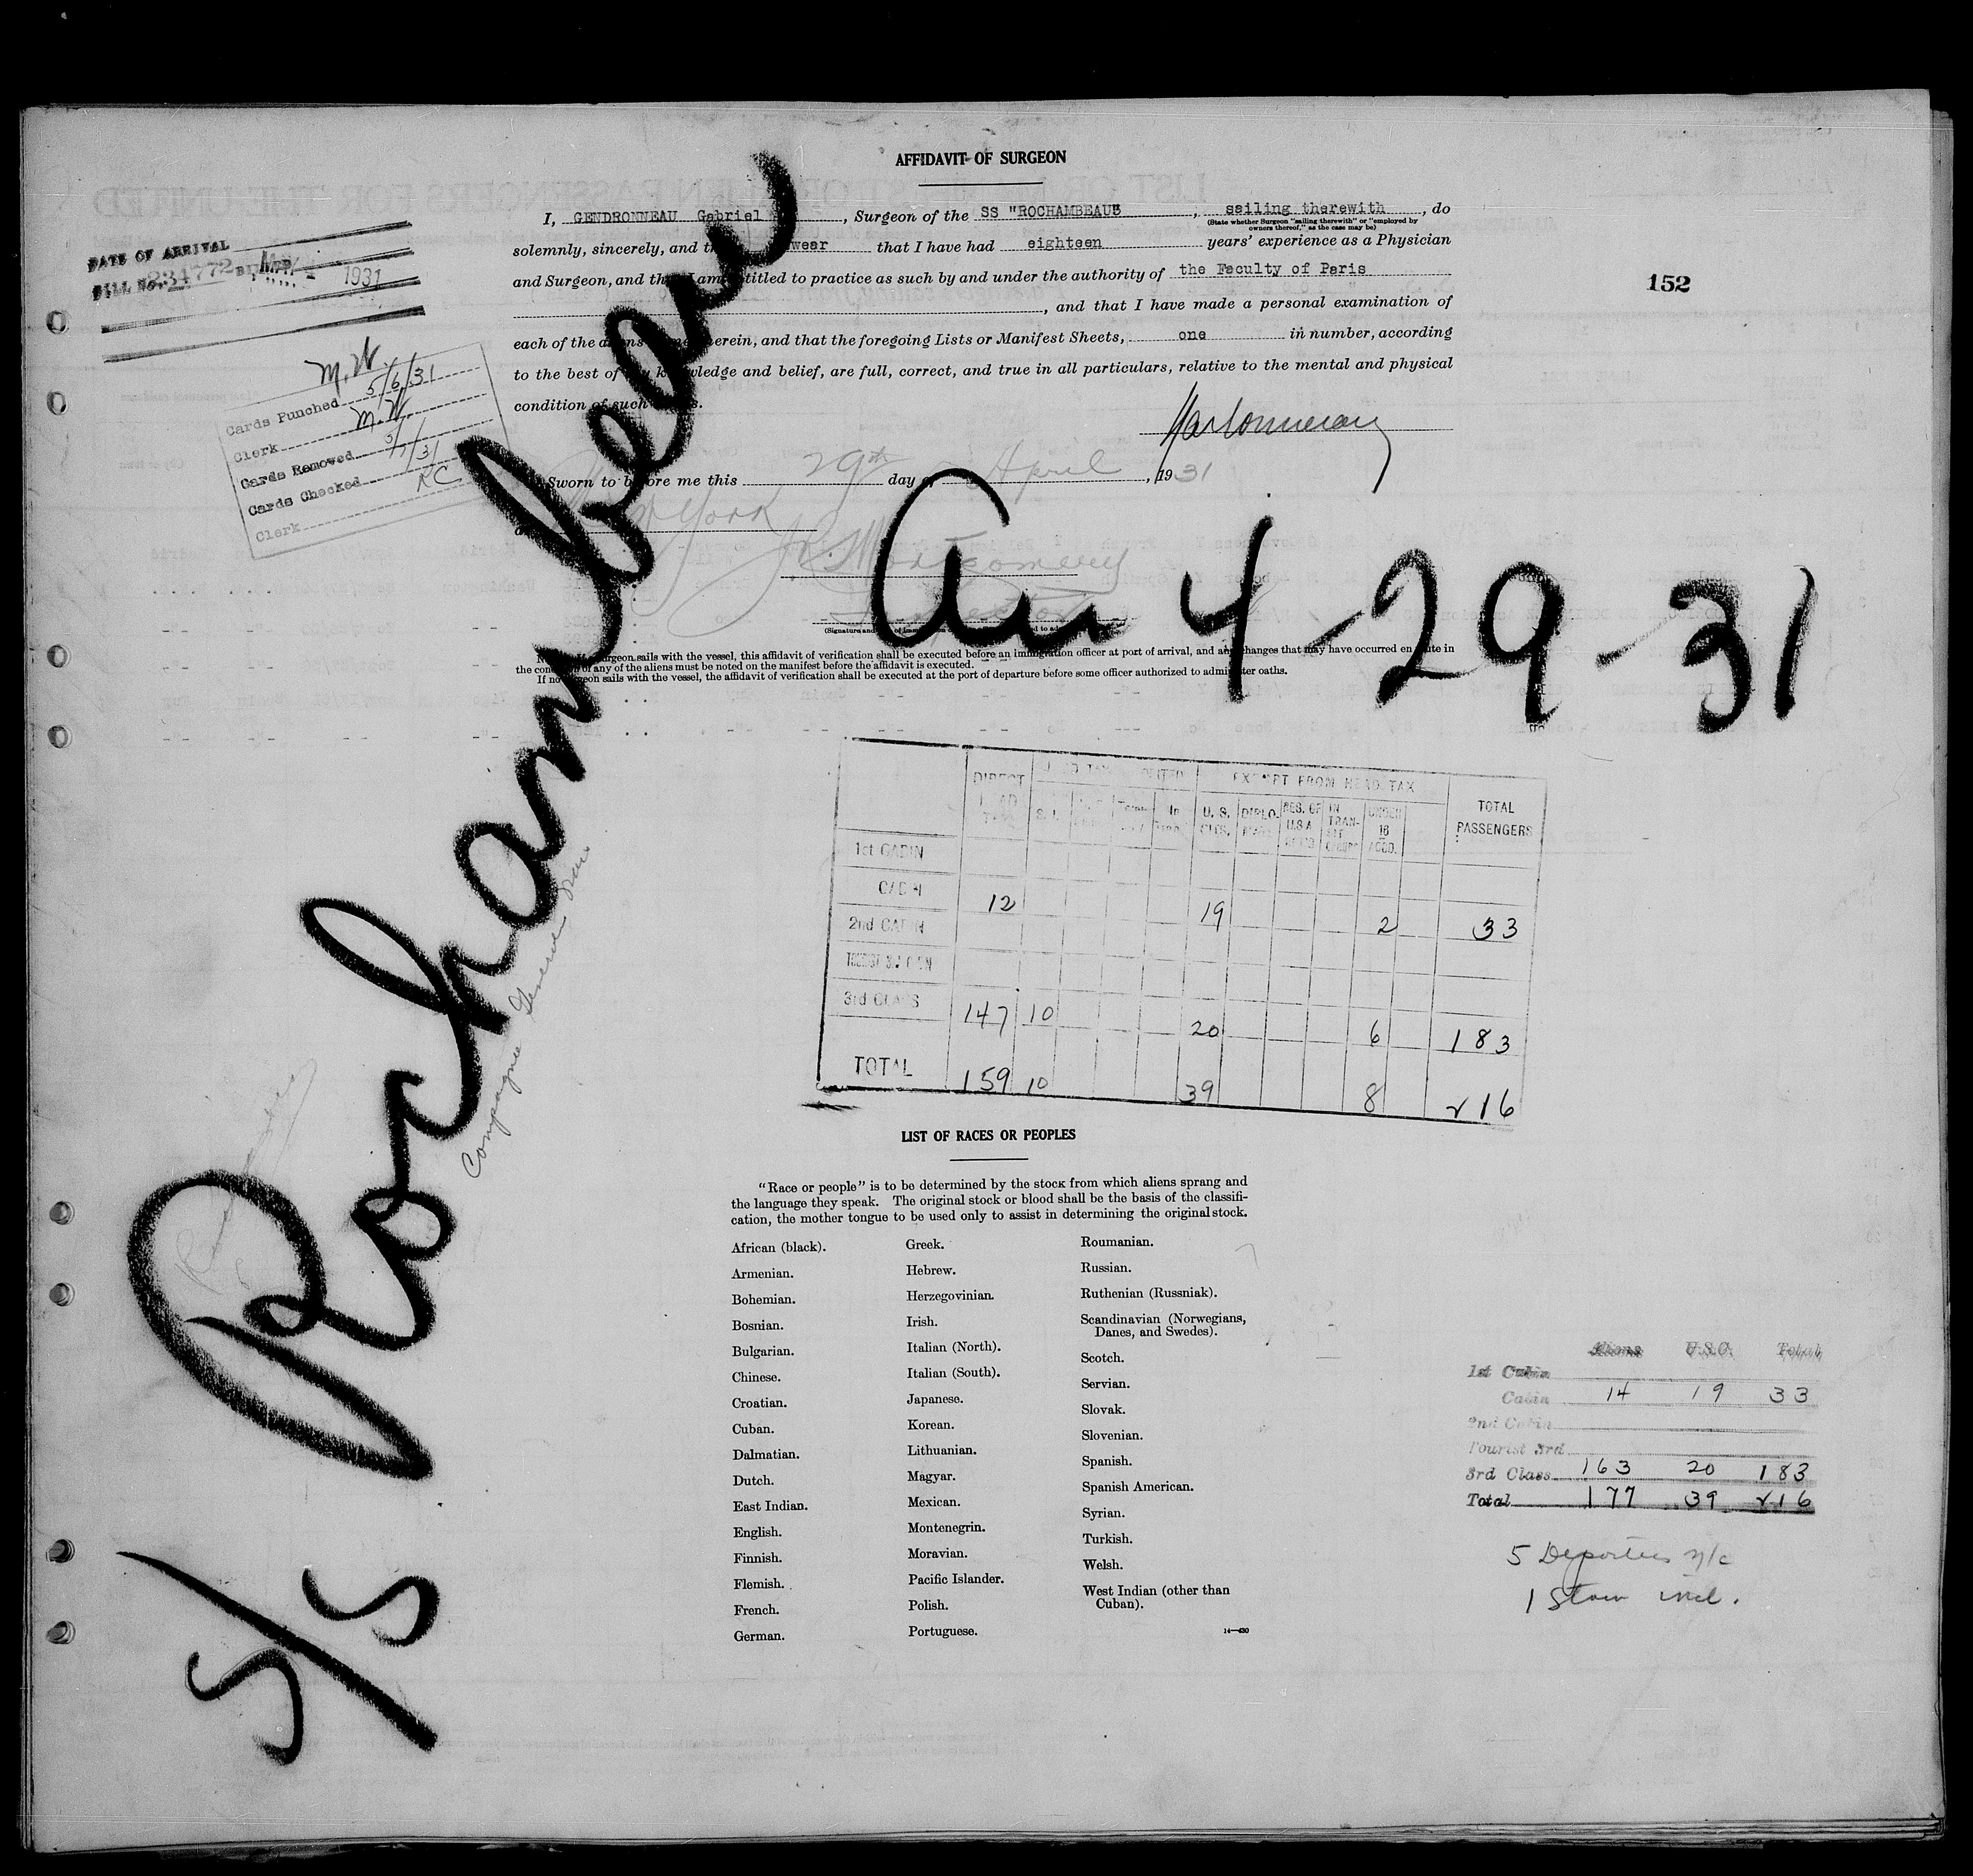 AFFIDAVIT OF SURGEON
I, GENDRONNEAU Gabriel, Surgeon of the SS "ROCHAMBEAU", sailing therewith, do
(State whether Surgeon "sailing therewith" or "employed by
owners thereof," as the case may be)
solemnly, sincerely, and wear that I have had eighteen years' experience as a Physician
and Surgeon, and that I am entitled to practice as such by and under the authority of the Faculty of Paris
, and that I have made a personal examination of
each of the aliens named herein, and that the foregoing Lists or Manifest Sheets, one in number, according
to the best of my knowledge and belief, are full, correct, and true in all particulars, relative to the mental and physical
condition of such
Sworn to before me this 29th day of April, 1931
at New York
Montgomery
Inspector
NOTE.—If surgeon sails with the vessel, this affidavit of verification shall be executed before an immigration officer at port of arrival, and any changes that may have occurred en route in
the condition of any of the aliens must be noted on the manifest before the affidavit is executed.
If no surgeon sails with the vessel, the affidavit of verification shall be executed at the port of departure before some officer authorized to administer oaths.
DATE OF ARRIVAL
BILL No. 234772 1931
152
M.W.
Cards Punched 5/6/31
Clerk M.W.
Cards Removed 5/7/31
Cards Checked RC
Clerk
S/S Rochambeau
Compagnie Generale
Arr 4-29-31
DIRECT HEAD TAX
EXEMPT FROM HEAD TAX
TOTAL PASSENGERS
U. S. DIPLO. RES. OF U.S.A. IN TRAN- UNDER 16 ACCO.
1st CABIN
CABIN 12 19 2 33
2nd CABIN
TOURIST 3rd CABIN
3rd CLASS 147 10 20 6 183
TOTAL 159 10 39 8 216
LIST OF RACES OR PEOPLES
"Race or people" is to be determined by the stock from which aliens sprang and
the language they speak. The original stock or blood shall be the basis of the classifi-
cation, the mother tongue to be used only to assist in determining the original stock.
African (black).
Armenian.
Bohemian.
Bosnian.
Bulgarian.
Chinese.
Croatian.
Cuban.
Dalmatian.
Dutch.
East Indian.
English.
Finnish.
Flemish.
French.
German.
Greek.
Hebrew.
Herzegovinian.
Irish.
Italian (North).
Italian (South).
Japanese.
Korean.
Lithuanian.
Magyar.
Mexican.
Montenegrin.
Moravian.
Pacific Islander.
Polish.
Portuguese.
Roumanian.
Russian.
Ruthenian (Russniak).
Scandinavian (Norwegians,
Danes, and Swedes).
Scotch.
Servian.
Slovak.
Slovenian.
Spanish.
Spanish American.
Syrian.
Turkish.
Welsh.
West Indian (other than
Cuban).
14—430
Aliens U.S.C. Total
1st Cabin
Cabin 14 19 33
2nd Cabin
Tourist 3rd
3rd Class 163 20 183
Total 177 39 216
5 Deportees n/c
1 Stow incl.